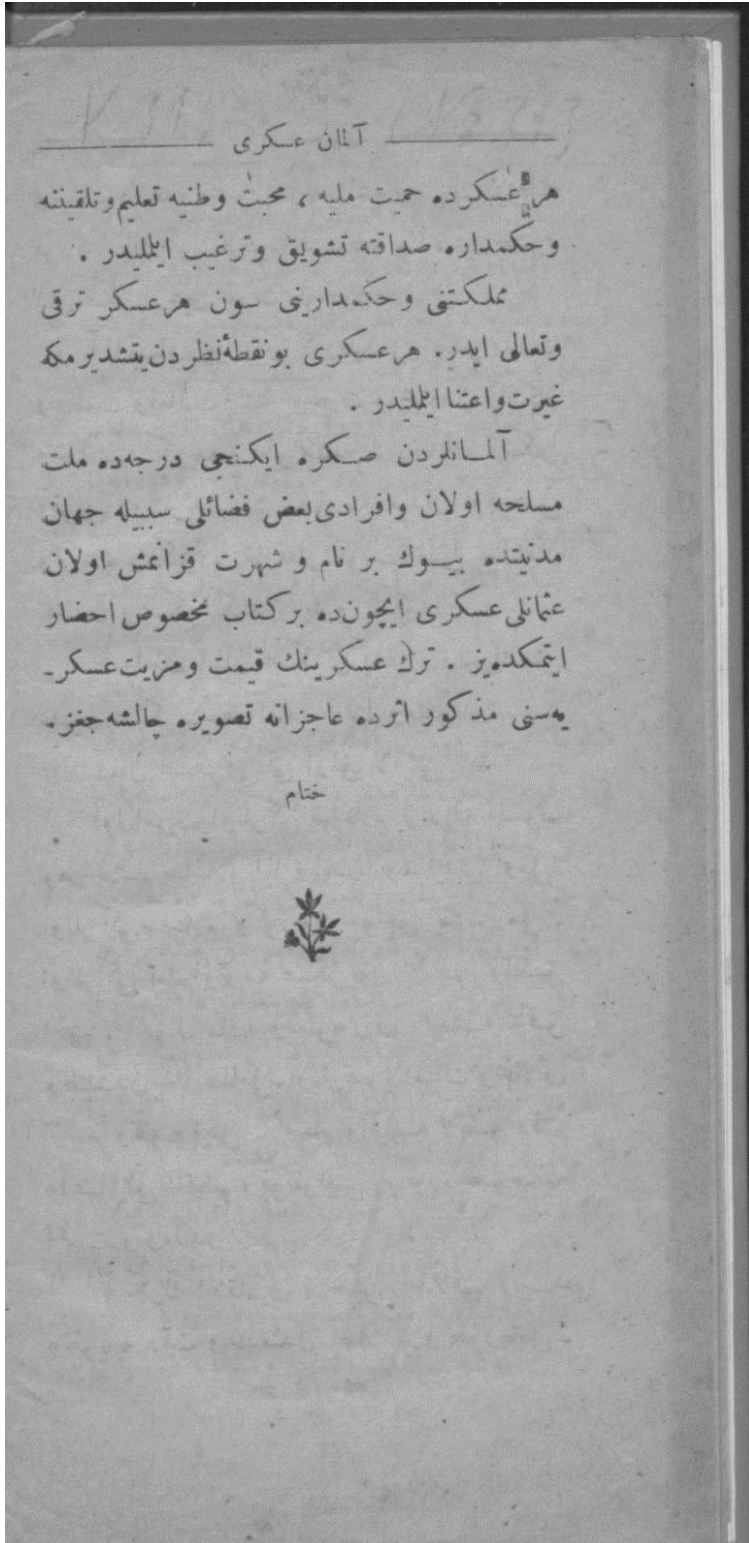 آلمان عسكرى
هر عسكرده حميت مليه ، محبت وطنيه تعليم وتلقيننه
وحكمداره صداقته تشويق وترغيب ايتمليدر .
مملكتنى وحكمدارينى سون هرعسكر ترقى
وتعالى ايدر. هرعسكرى بونقطۀنظردن يتشديرمكه
غيرت واعتنا ايتمليدر .
آلمـانلردن صـكره ايكـنجى درجه‌ده ملت
مسلحه اولان وافرادى بعض فضائلى سببيله جهان
مدنيتده بيـوك بر نام و شهرت قزانمش اولان
عثمانلى عسكرى ايچون‌ده بركتاب مخصوص احضار
ايتمكده‌يز . ترك عسكرينك قيمت ومزيت عسكر-
يه‌سنى مذكور اثرده عاجزانه تصويره چالشه‌جغز.
ختام